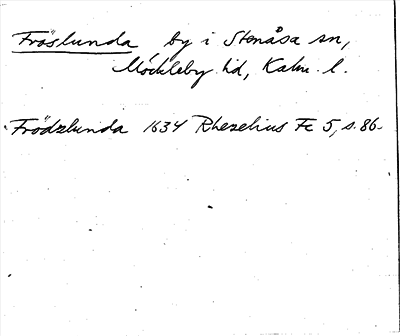 Fröslunda by i Stenåsa sn,
Möckleby hd, Kalm. l.
Frödzlunda 1634 Rhezelius Fc 5, s. 86.